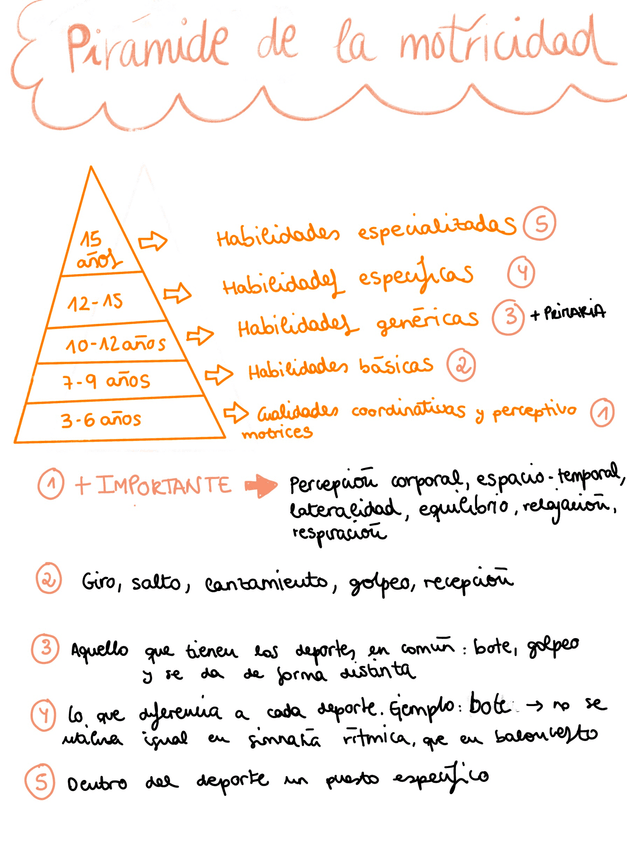 Pirámide de la motricidad
15 años Habilidades especializadas 5
12-15 Habilidades específicas 4
10-12 años Habilidades genéricas 3 + PRIMARIA
7-9 años Habilidades básicas 2
3-6 años Cualidades coordinativas y perceptivo 1
motrices
1 + IMPORTANTE Percepción corporal, espacio-temporal,
lateralidad, equilibrio, relajación,
respiración
2 Giro, salto, lanzamiento, golpeo, recepción
3 Aquello que tienen los deportes en común: bote, golpeo
y se da de forma distinta
4 Lo que diferencia a cada deporte. Ejemplo: bote → no se
utiliza igual en gimnasia rítmica, que en baloncesto
5 Dentro del deporte un puesto específico